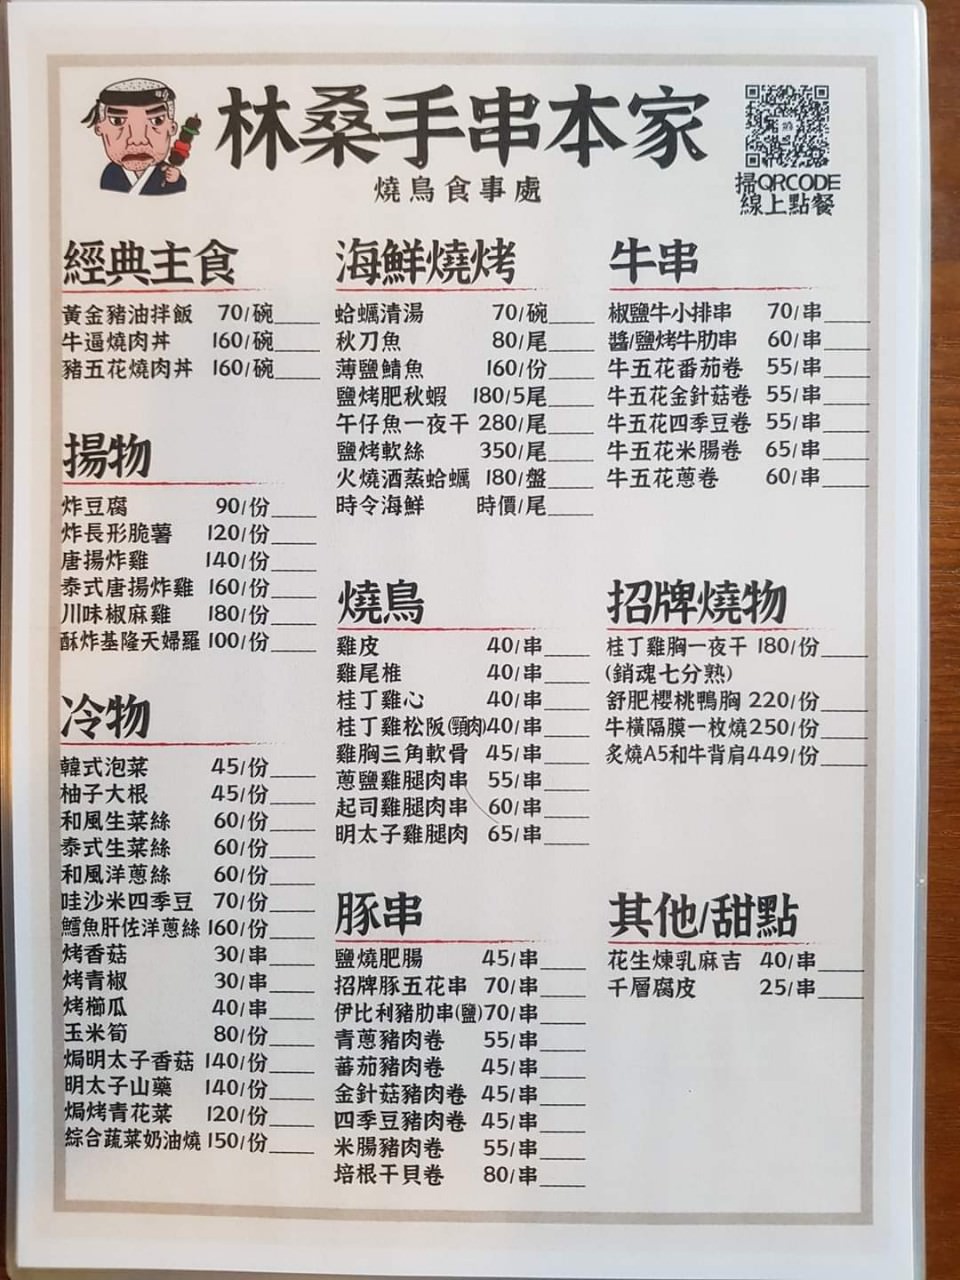 林桑手串本家
燒鳥食事處
掃QRCODE
線上點餐
經典主食
黃金豬油拌飯 70/碗
牛逼燒肉丼 160/碗
豬五花燒肉丼 160/碗
揚物
炸豆腐 90/份
炸長形脆薯 120/份
唐揚炸雞 140/份
泰式唐揚炸雞 160/份
川味椒麻雞 180/份
酥炸基隆天婦羅 100/份
冷物
韓式泡菜 45/份
柚子大根 45/份
和風生菜絲 60/份
泰式生菜絲 60/份
和風洋蔥絲 60/份
哇沙米四季豆 70/份
鱈魚肝佐洋蔥絲 160/份
烤香菇 30/串
烤青椒 30/串
烤櫛瓜 40/串
玉米筍 80/份
焗明太子香菇 140/份
明太子山藥 140/份
焗烤青花菜 120/份
綜合蔬菜奶油燒 150/份
海鮮燒烤
蛤蠣清湯 70/碗
秋刀魚 80/尾
薄鹽鯖魚 160/份
鹽烤肥秋蝦 180/5尾
午仔魚一夜干 280/尾
鹽烤軟絲 350/尾
火燒酒蒸蛤蠣 180/盤
時令海鮮 時價/尾
燒鳥
雞皮 40/串
雞尾椎 40/串
桂丁雞心 40/串
桂丁雞松阪(頸肉)40/串
雞胸三角軟骨 45/串
蔥鹽雞腿肉串 55/串
起司雞腿肉串 60/串
明太子雞腿肉 65/串
豚串
鹽燒肥腸 45/串
招牌豚五花串 70/串
伊比利豬肋串(鹽)70/串
青蔥豬肉卷 55/串
蕃茄豬肉卷 45/串
金針菇豬肉卷 45/串
四季豆豬肉卷 45/串
米腸豬肉卷 55/串
培根干貝卷 80/串
牛串
椒鹽牛小排串 70/串
醬/鹽烤牛肋串 60/串
牛五花番茄卷 55/串
牛五花金針菇卷 55/串
牛五花四季豆卷 55/串
牛五花米腸卷 65/串
牛五花蔥卷 60/串
招牌燒物
桂丁雞胸一夜干 180/份
(銷魂七分熟)
舒肥櫻桃鴨胸 220/份
牛橫隔膜一枚燒250/份
炙燒A5和牛背肩449/份
其他/甜點
花生煉乳麻吉 40/串
千層腐皮 25/串